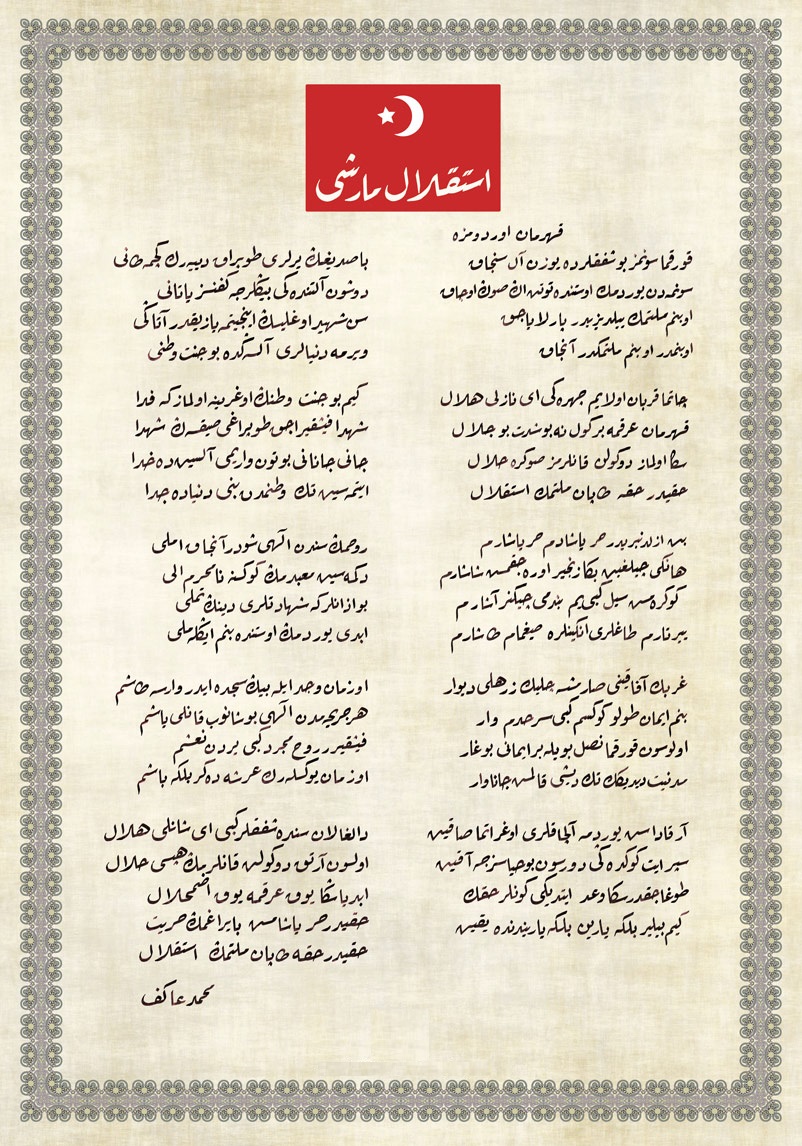 استقلال مارشی
قهرمان اوردومزه
قورقما سونمز بو شفقلرده یوزن آل سنجاق
سونمه‌دن یوردمك اوستنده توتن اڭ صوڭ اوجاق
او بنم ملتمك ییلدیزیدر پارلایاجق
او بنمدر او بنم ملتمكدر آنجاق
چاتما قربان اولایم چهره‌كی ای نازلی هلال
قهرمان عرقمه بر كول نه بو شدت بو جلال
سكا اولماز دوكولن قانلرمز صوكره حلال
حقیدر حقه طاپان ملتمك استقلال
بن ازلدنبریدر حر یاشادم حر یاشارم
هانكی چیلغین بكا زنجیر اوره‌جقمس شاشارم
كوكره‌مس سیل كبی‌یم بندمی چیكنر آشارم
ییرتارم طاغلری انكینلره صیغمام طاشارم
غربك آفاقنی صارمشسه چلیك زرهلی دیوار
بنم ایمان طولو كوكسم كبی سرحدم وار
اولوسون قورقما نصل بویله بر ایمانی بوغار
مدنیت دیدیكك تك دیشی قالمس جاناوار
آرقاداس یوردمه آلچاقلری اوغراتما صاقین
سپر ایت كوكده‌كی دورسون بو حیاسزجه آقین
طوغاجقدر سكا وعد ایتدیكی كونلر حقك
كیم بیلیر بلكه یارین بلكه یاریندنده یقین
باصدیغك یرلری طوپراق دییه‌رك كچمه طانی
دوشون آلتنده‌كی بیكلرجه كفنسز یاتانی
سن شهید اوغلیسك اینجیتمه یازیقدر آتاكی
ویرمه دنیالری آلسه‌كده بو جنت وطنی
كیم بو جنت وطنك اوغرینه اولمازكه فدا
شهدا فیشقیراجق طوپراغی صیقسه‌ك شهدا
جانی جانانی بوتون واریمی آلسین ده خدا
ایتمه‌سین تك وطنمدن بنی دنیاده جدا
روحمك سندن الهی شودر آنجاق املی
دكمه‌سین معبدمك كوكسنه نامحرم الی
بو اذانلر كه شهادتلری دینك تملی
ابدی یوردمك اوستنده بنم ایكله‌ملی
او زمان وجد ایله بیك سجده ایدر وارسه طاشم
هر جریحه‌مدن الهی بوشانوب قانلی یاشم
فیشقیریر روح مجرد كبی یردن نعشم
او زمان یوكسله‌رك عرشه دكر بلكه باشم
دالغالان سنده شفقلر كبی ای شانلی هلال
اولسون آرتق دوكولن قانلریمك هپسی حلال
ابدیا سكا یوق عرقمه یوق اضمحلال
حقیدر حر یاشامس بایراغمك حریت
حقیدر حقه طاپان ملتمك استقلال
محمد عاكف